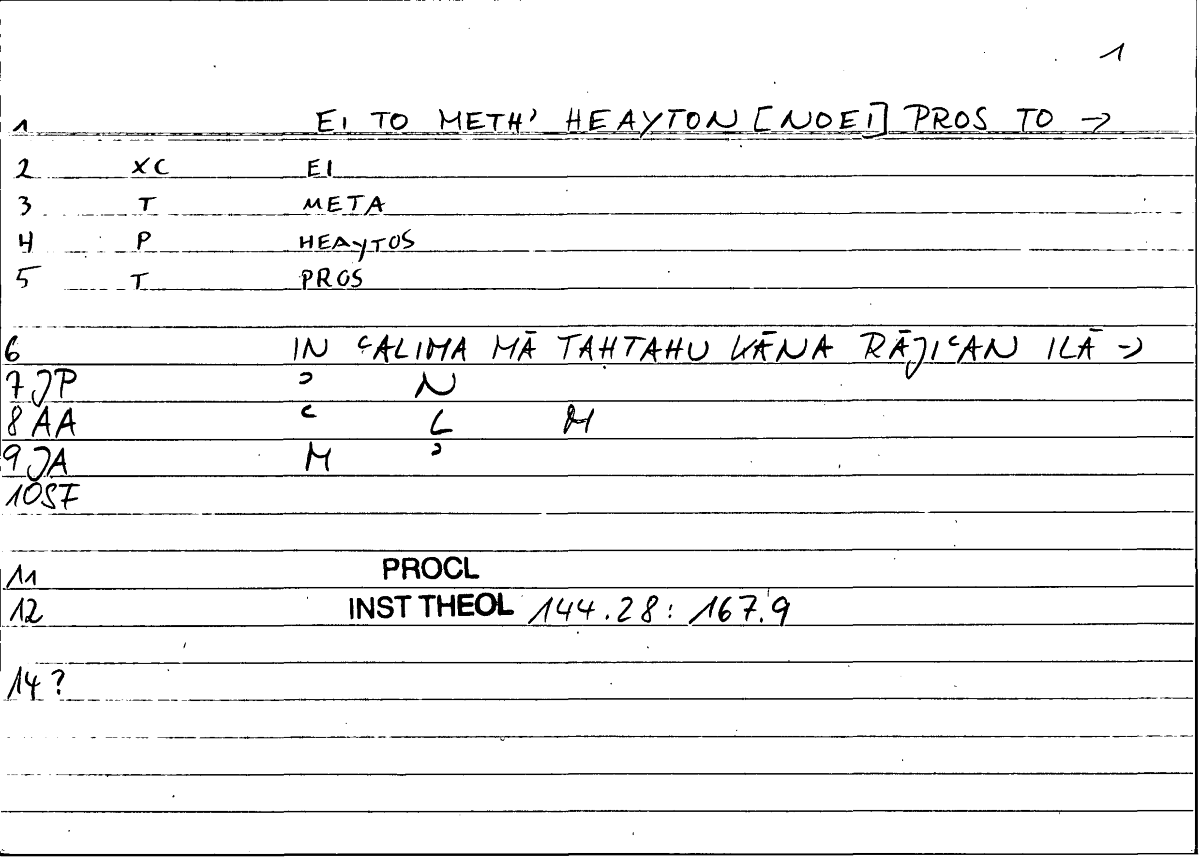 1
1 EI TO METH' HEAYTON [NOEI] PROS TO →
2 XC EI
3 T META
4 P HEAYTOS
5 T PROS
6 IN ʿALIMA MĀ TAḤTAHU KĀNA RĀJIʿAN ILĀ →
7 JP ʾ N
8 AA ʿ L M
9 JA M ʾ
10 SF
11 PROCL
12 INST THEOL 144.28: 167.9
14 ?